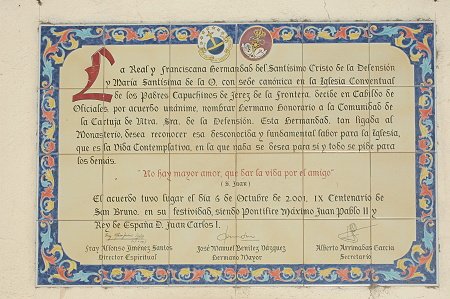 La Real y Franciscana Hermandad del Santísimo Cristo de la Defensión
y María Santísima de la O, con sede canónica en la Iglesia Conventual
de los Padres Capuchinos de Jerez de la Frontera, decide en Cabildo de
Oficiales, por acuerdo unánime, nombrar Hermano Honorario a la Comunidad de
la Cartuja de Ntra. Sra. de la Defensión. Esta Hermandad, tan ligada al
Monasterio, desea reconocer esa desconocida y fundamental labor para la Iglesia,
que es la Vida Contemplativa, en la que nada se desea para si y todo se pide para
los demás.
"No hay mayor amor, que dar la vida por el amigo"
(S. Juan)
El acuerdo tuvo lugar el día 6 de Octubre de 2.001, IX Centenario de
San Bruno, en su festividad, siendo Pontífice Máximo Juan Pablo II y
Rey de España D. Juan Carlos I.
Fray Alfonso Jiménez Santos José Manuel Benítez Vázquez Alberto Arrimadas García
Director Espiritual Hermano Mayor Secretario